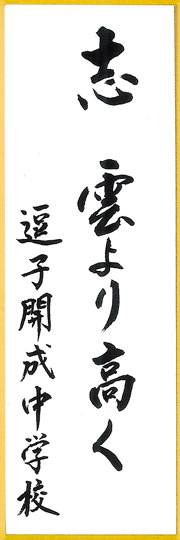 志 雲より高く
逗子開成中学校